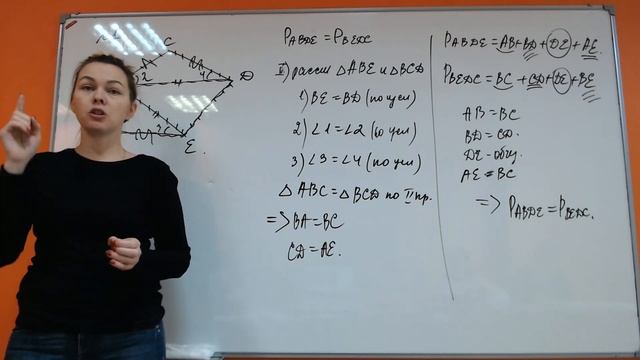 C
2
4
D
3
E.
P ABDE = P BEDC
II) рассм △ ABE и △ BCD
1) BE = BD (по усл)
2) ∠1 = ∠2 (по усл)
3) ∠3 = ∠4 (по усл)
△ ABC = △ BCD по II пр.
=> BA = BC
CD = AE.
P ABDE = AB + BD + DE + AE.
P BEDC = BC + CD + DE + BE
AB = BC
BD = CD.
DE - общ.
AE = BC
=> P ABDE = P BEDC.